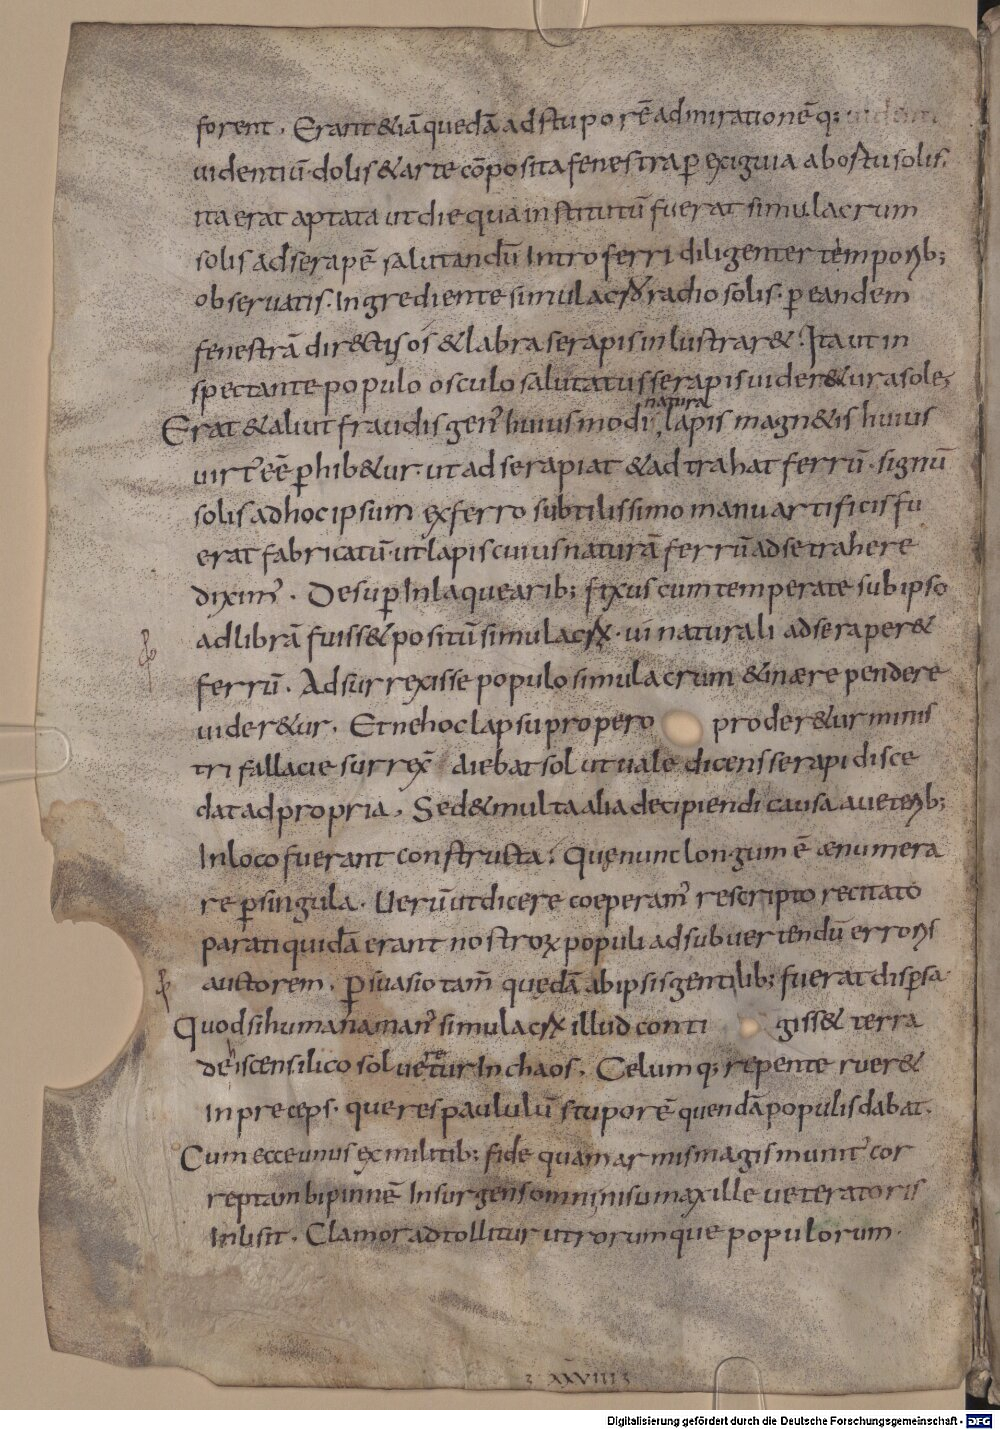 forent. Erant &iā quedā ad stuporē admirationēq;
uidentiū. dolis & arte cōposita fenestra ꝑ exigua ab ostu solis.
ita erat aptata ut die qua institutū fuerat simulacrum
solis ad serapē salutandū Intro ferri diligenter temporib;
obseruatis. Ingrediente simulacrꝝ radio solis. ꝑ eandem
fenestrā directis ós & labra serapis inlustrar&. Ita ut in
spectante populo osculo salutatus serapis uider&ur a sole;
Erat & aliut fraudis gen' huiusmodi, natura lapis magn&is huius
uirt' eē ꝑhib&ur. ut ad se rapiat & adtrahat ferrū. signū
solis ad hoc ipsum ex ferro subtilissimo manu artificis fu
erat fabricatū. ut lapis cuius naturā ferrū ad se trahere
dixim'. Desuꝑ In laquearib; fixus cum temperate sub ipso
ad librā fuiss& positū simulacrꝝ. ui naturali ad se raper&
ferrū. Adsurrexisse populo simulacrum & in aere pendere
uider&ur. Et ne hoc lapsu propero proder&ur minis
tri fallacie surrex̄ aiebat sol ut uale dicens serapi disce
dat ad propria. Sed & multa alia decipiendi causa a ueterib;
In loco fuerant constructa. Quę nunc longum ē ænumera
re ꝑ singula. Uerū ut dicere coeperam' rescripto recitato
parati quidā erant nostroꝝ populi ad subuertendū erroris
auctorem. ꝑsuasio tam̄ quędā ab ipsis gentilib; fuerat disꝑsa
Quod si humana man' simulacrꝝ illud conti giss& terra
dehiscens ilico solueretur In chaos. Celumq; repente ruer&
In preceps. que res paululū stuporē quendā populis dabat.
Cum ecce unus ex militib; fide quam armis magis munit' cor
reptam bipinnē Insurgens omni nisu maxille ueteratoris
Inlisit. Clamor adtollitur utrorumque populorum.
xxxviiii
Digitalisierung gefördert durch die Deutsche Forschungsgemeinschaft - DFG